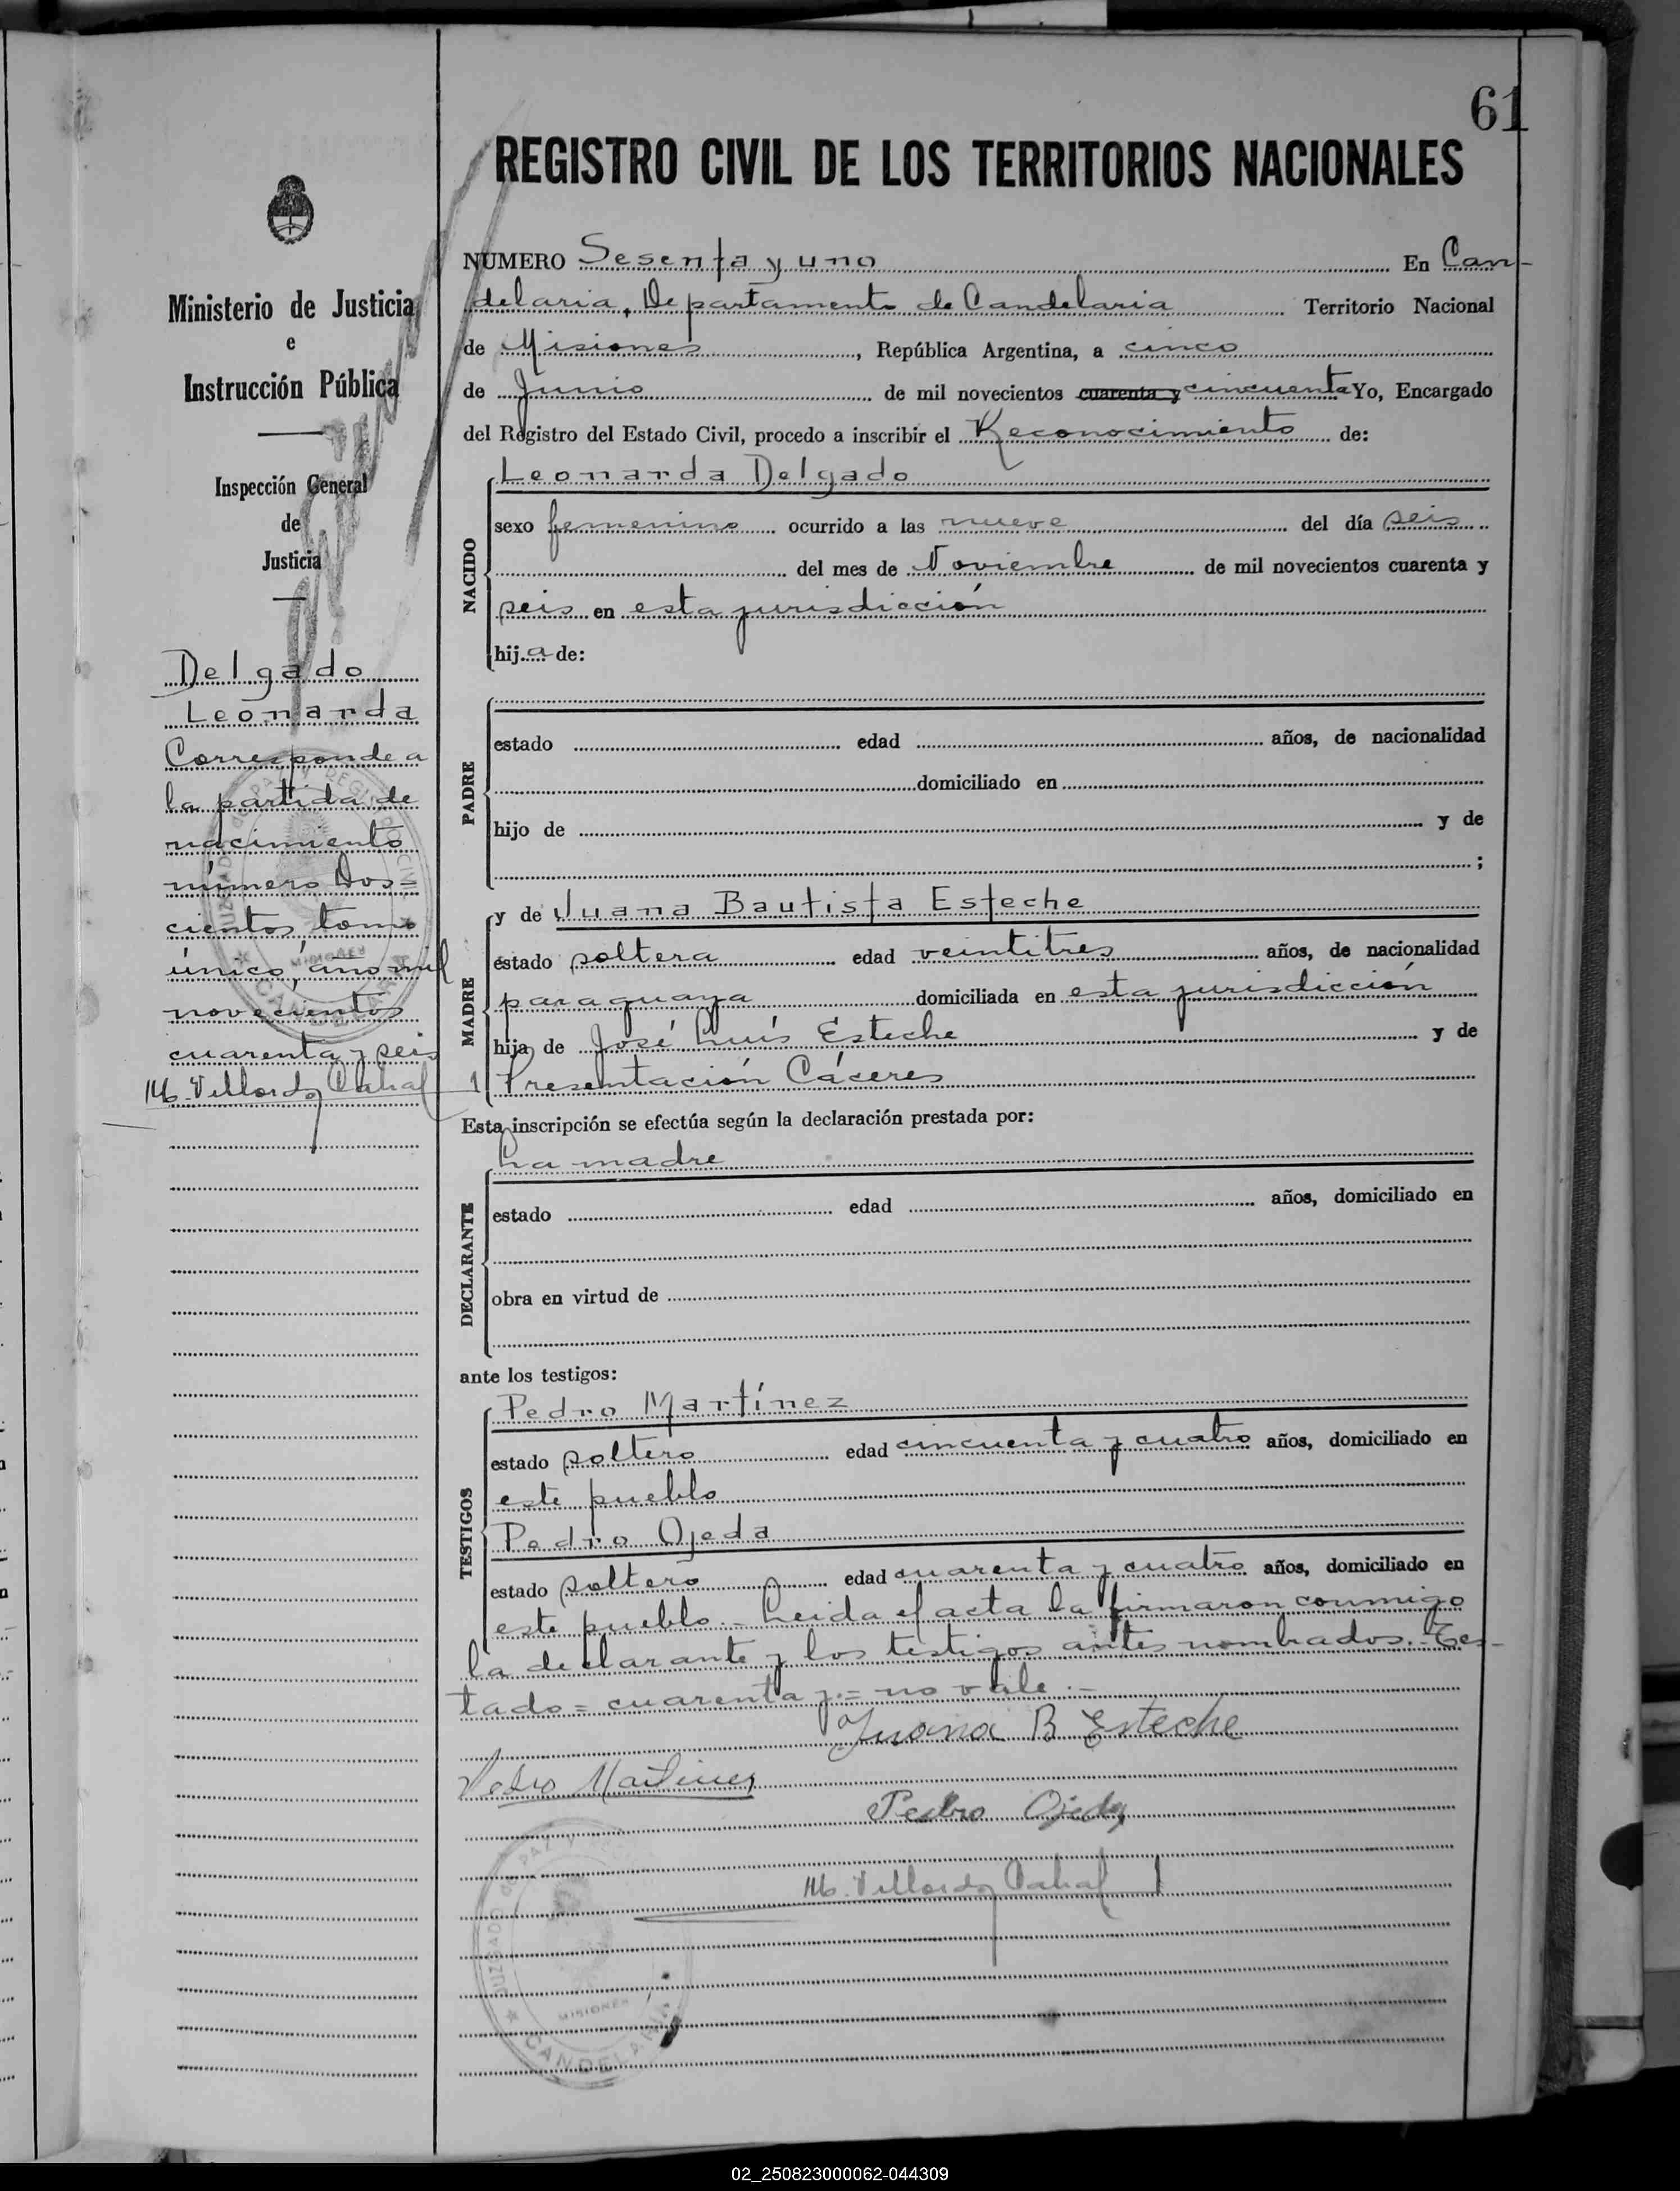 61
REGISTRO CIVIL DE LOS TERRITORIOS NACIONALES
Ministerio de Justicia
e
Instrucción Pública
Inspección General
de
Justicia
Delgado
Leonarda
Corresponde a
la partida de
nacimiento
número Dos=
cientos, tomo
único, año mil
novecientos
cuarenta y seis
NUMERO Sesenta y uno En Can-
delaria, Departamento de Candelaria Territorio Nacional
de Misiones, República Argentina, a cinco
de Junio de mil novecientos cuarenta y cincuenta Yo, Encargado
del Registro del Estado Civil, procedo a inscribir el Reconocimiento de:
NACIDO
Leonarda Delgado
sexo femenino ocurrido a las nueve del día seis
del mes de Noviembre de mil novecientos cuarenta y
seis en esta jurisdicción
hija de:
PADRE
estado edad años, de nacionalidad
domiciliado en
hijo de y de
;
MADRE
y de Juana Bautista Esteche
estado soltera edad veintitres años, de nacionalidad
paraguaya domiciliada en esta jurisdicción
hija de José Luís Esteche y de
Presentación Cáceres
Esta inscripción se efectúa según la declaración prestada por:
DECLARANTE
La madre
estado edad años, domiciliado en
obra en virtud de
ante los testigos:
TESTIGOS
Pedro Martínez
estado soltero edad cincuenta y cuatro años, domiciliado en
este pueblo
Pedro Ojeda
estado soltero edad cuarenta y cuatro años, domiciliado en
este pueblo. Leida el acta la firmaron conmigo
la declarante y los testigos antes nombrados.-Tes-
tado=cuarenta y=no vale.-
Juana B Esteche
Pedro Martinez
Pedro Ojeda
JUZGADO DE PAZ Y
MISIONES
CANDELARIA
02_250823000062-044309